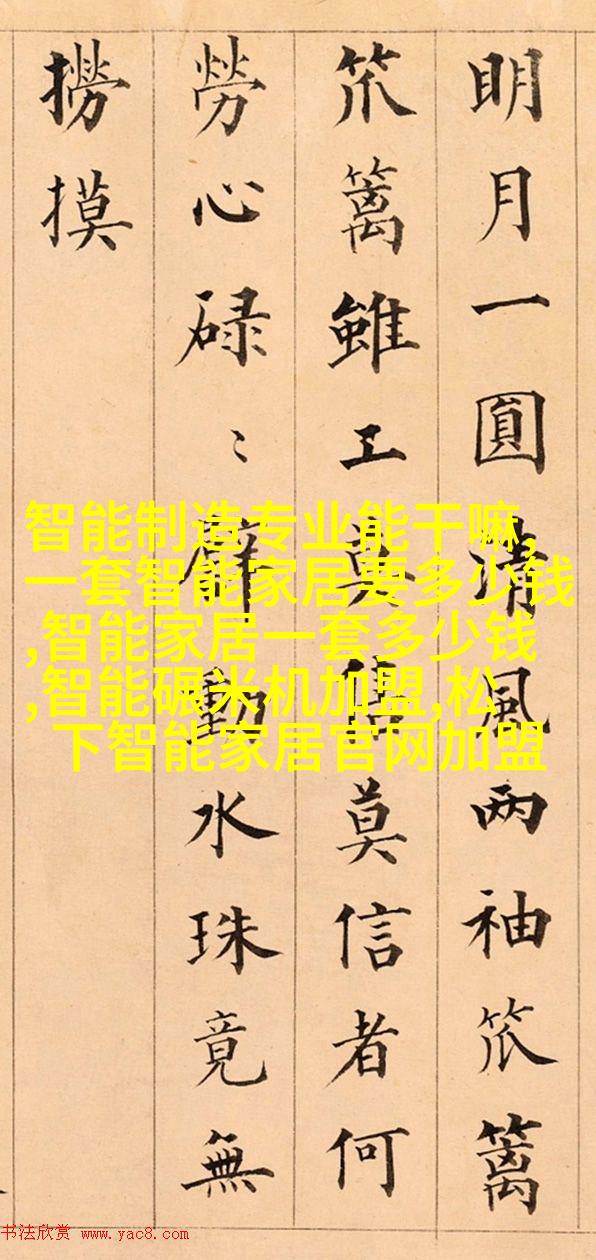 明月一圓清風两袖笊篱
笊篱雖工莫信莫信者何
勞心碌〻動水珠竟無
撈摸
智能制造专业能干嘛,
一套智能家居要多少钱
,智能家居一套多少钱
,智能碾米机加盟,松
下智能家居官网加盟
书法欣赏 www.yac8.com